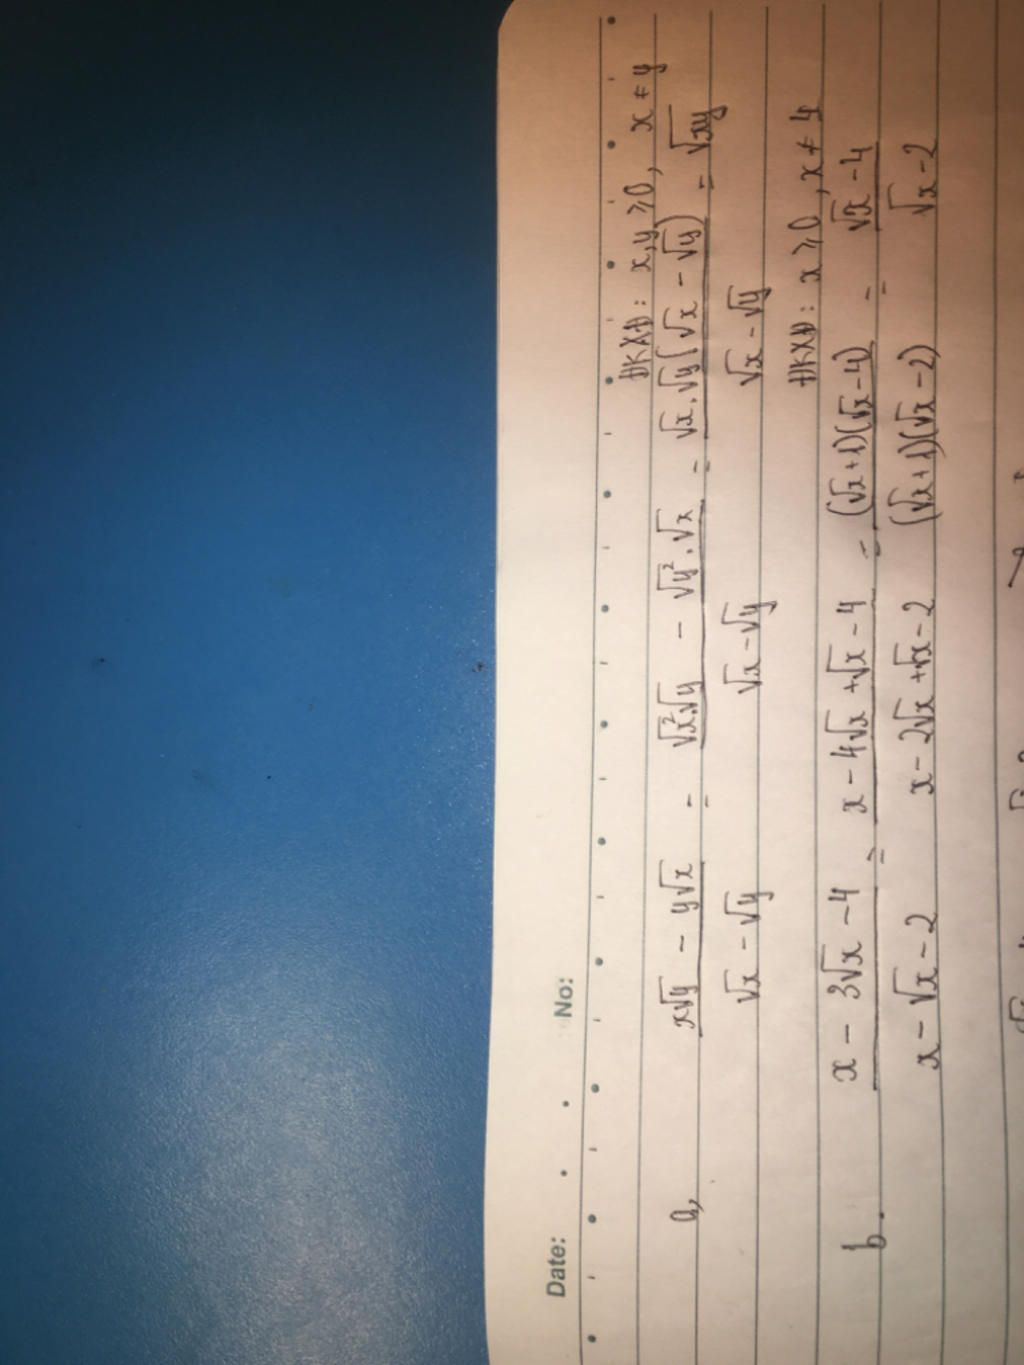 Date: No:
ĐKXĐ: x,y ≥ 0, x ≠ y
a, (x√y − y√x)/(√x − √y) = (√x².√y − √y².√x)/(√x − √y) = (√x.√y(√x − √y))/(√x − √y) = √xy
ĐKXĐ: x ≥ 0, x ≠ 4
b. (x − 3√x − 4)/(x − √x − 2) = (x − 4√x + √x − 4)/(x − 2√x + √x − 2) = ((√x + 1)(√x − 4))/((√x + 1)(√x − 2)) = (√x − 4)/(√x − 2)